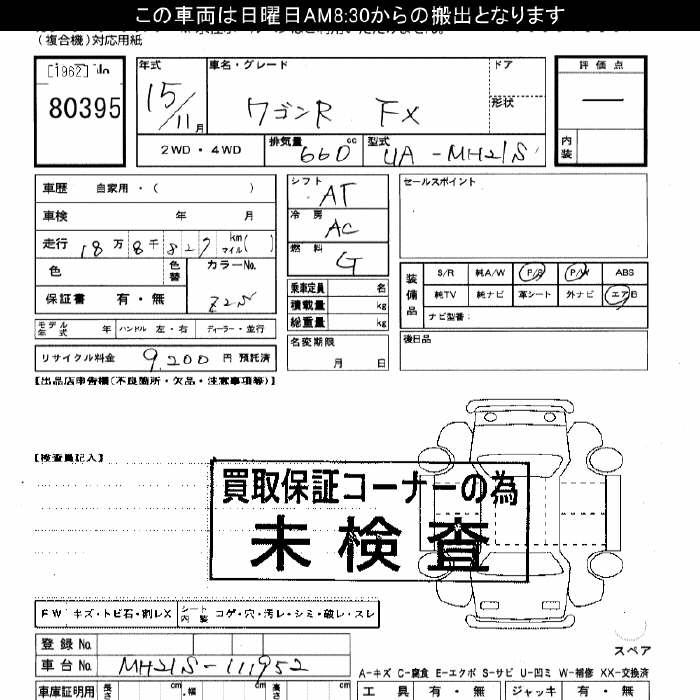 この車両は日曜日AM8:30からの搬出となります
(複合機)対応用紙
80395
年式 車名・グレード ドア 評価点
15/11月 ワゴンR FX 形状
2WD・4WD 排気量 660 cc 型式 UA-MH21S 内装
車歴 自家用・( ) シフト AT セールスポイント
車検 年 月 冷房 AC
走行 18万8千827 km マイル( ) 燃料 G
色 色替 カラーNo. Z2S
保証書 有・無
乗車定員 名
積載量 kg
総重量 kg
装備品 S/R 純A/W P/S P/W ABS
純TV 純ナビ 革シート 外ナビ エアB
ナビ型番:
モデル年式 年 ハンドル 左・右 ディーラー・並行
名変期限 月 日
後日品
リサイクル料金 9,200 円 預託済
【出品店申告欄(不良箇所・欠品・注意事項等)】
【検査員記入】
買取保証コーナーの為
未検査
FW キズ・トビ石・割レX シート内装 コゲ・穴・汚レ・シミ・破レ・スレ
スペア
登録 No.
車台 No. MH21S-111952
A-キズ C-腐食 E-エクボ S-サビ U-凹ミ W-補修 XX-交換済
車庫証明用 長さ cm 幅 cm 高さ cm 工具 有・無 ジャッキ 有・無